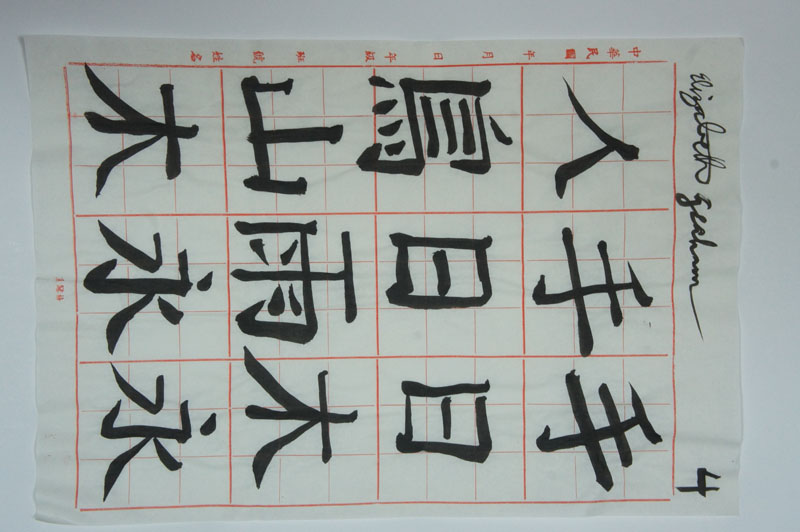 Elizabeth Graham
4
手日木永
手日雨永
人鳥山木
中華民國 年 月 日 年級 班 號 姓名